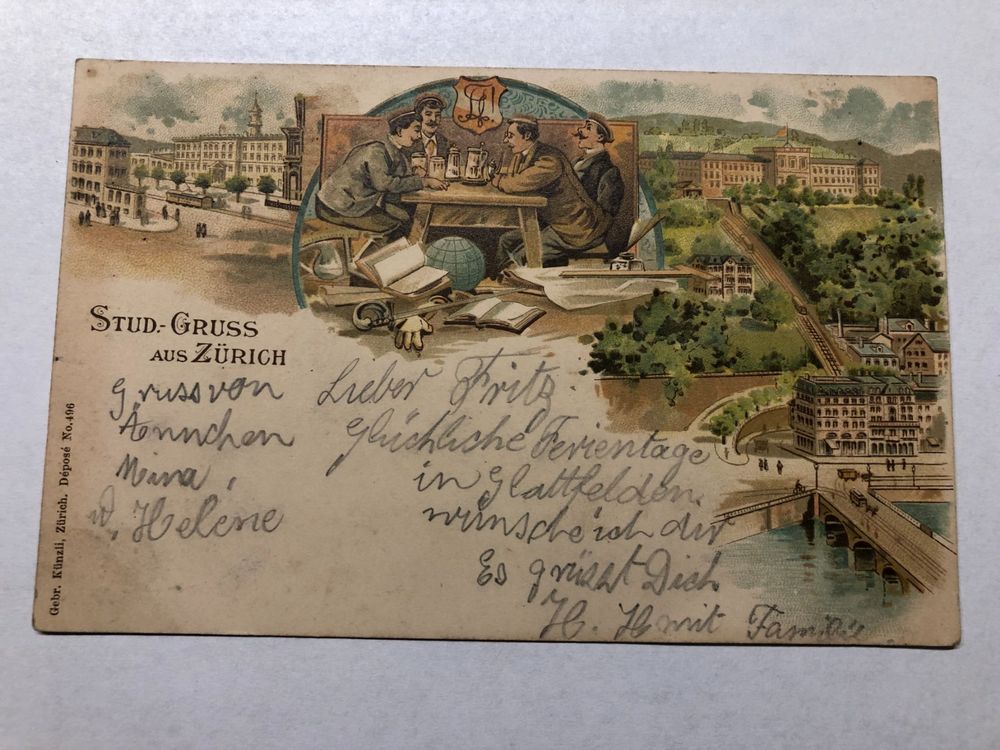 STUD.-GRUSS
AUS ZÜRICH
Gruss von
Annchen
Mina,
u. Helene
Lieber Fritz.
Glückliche Ferientage
in Glattfelden
wünsche ich dir
Es grüsst Dich
H. H mit Familie
Gebr. Künzli, Zürich. Déposé No. 496